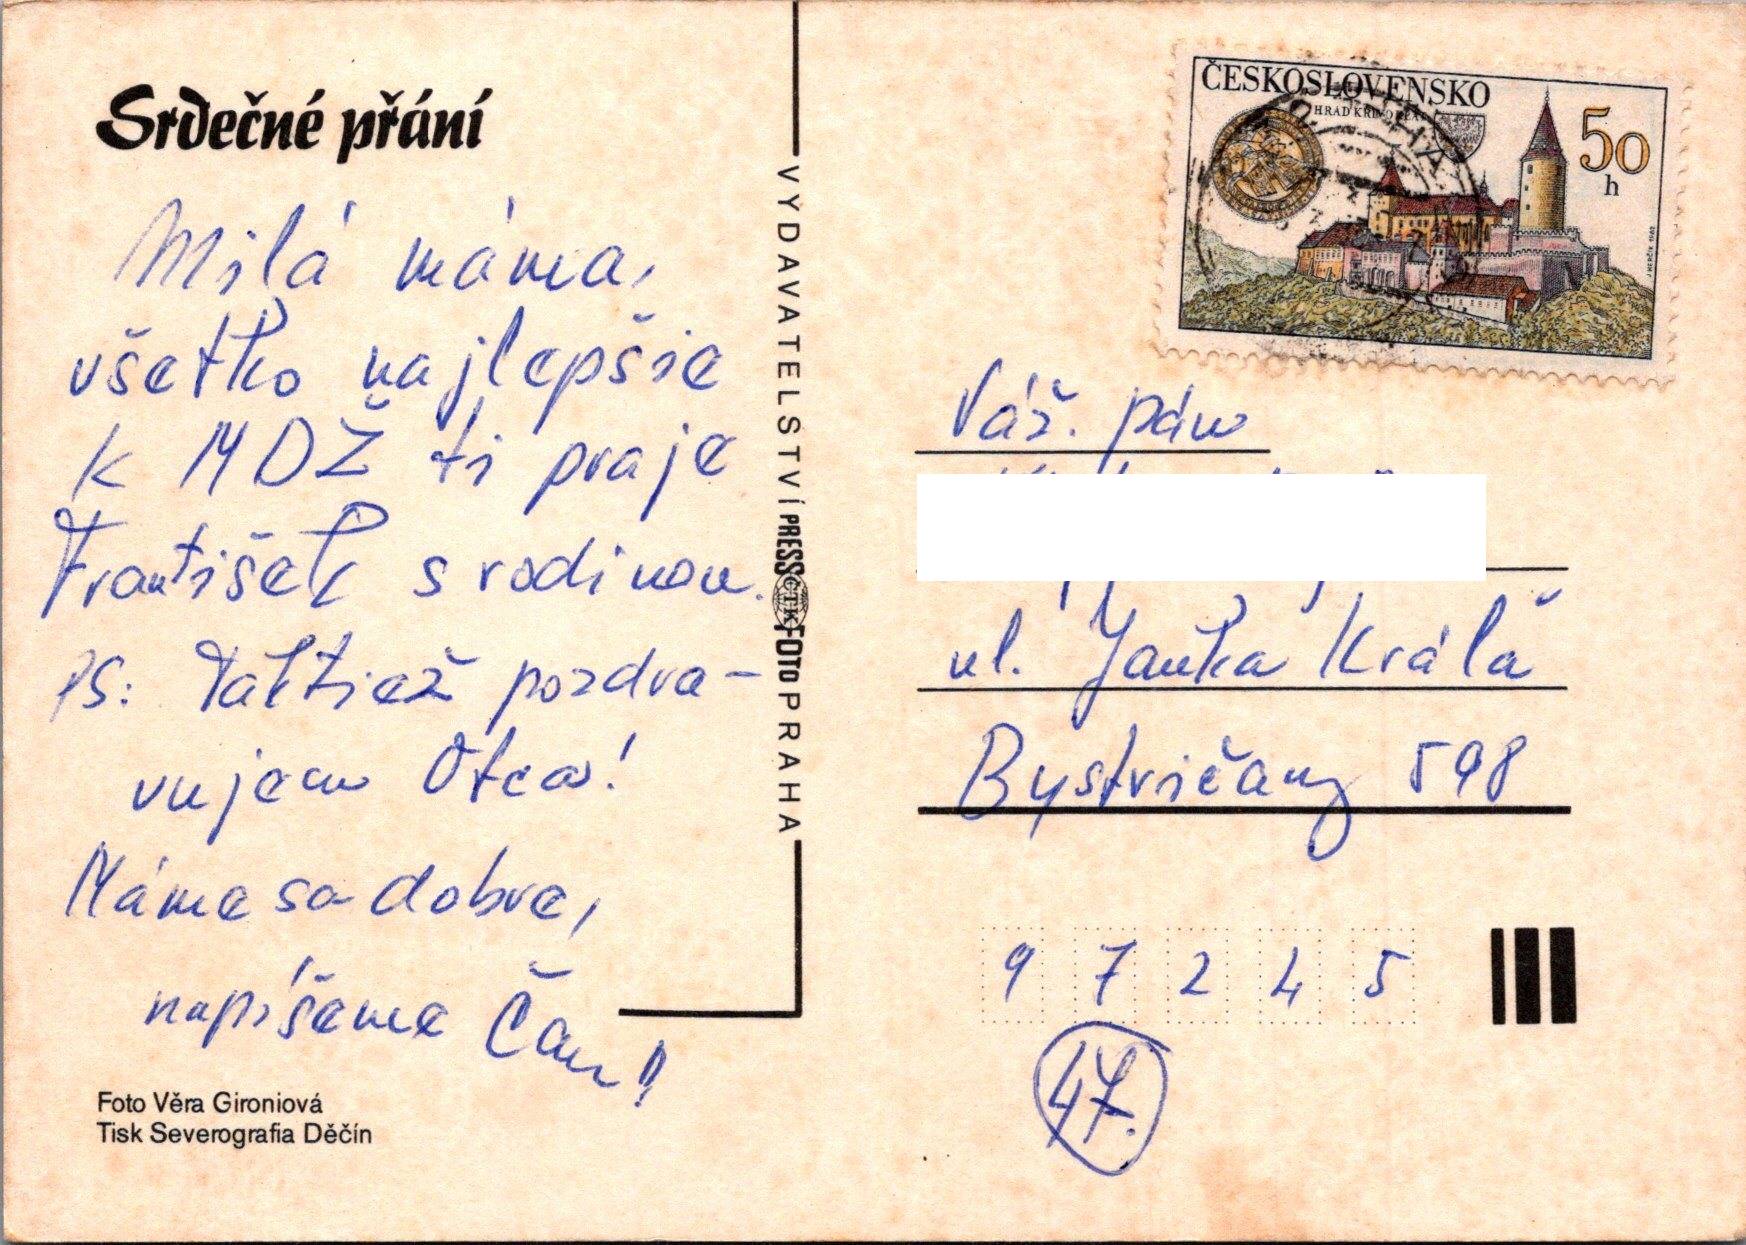 Srdečné přání
Milá máma,
všetko najlepšie
k MDŽ ti praje
František s rodinou.
PS: Taktiež pozdra-
vujem Otca!
Máme sa dobre,
napíšeme Čau!!
Foto Věra Gironiová
Tisk Severografia Děčín
VYDAVATELSTVÍ PRESSFOTO PRAHA
ČTK
ČESKOSLOVENSKO
HRAD KŘIVOKLÁT
50
h
J. HERČÍK 1982
Váž. pán
ul. Janka Kráľa
Bystričany 598
9 7 2 4 5
47.